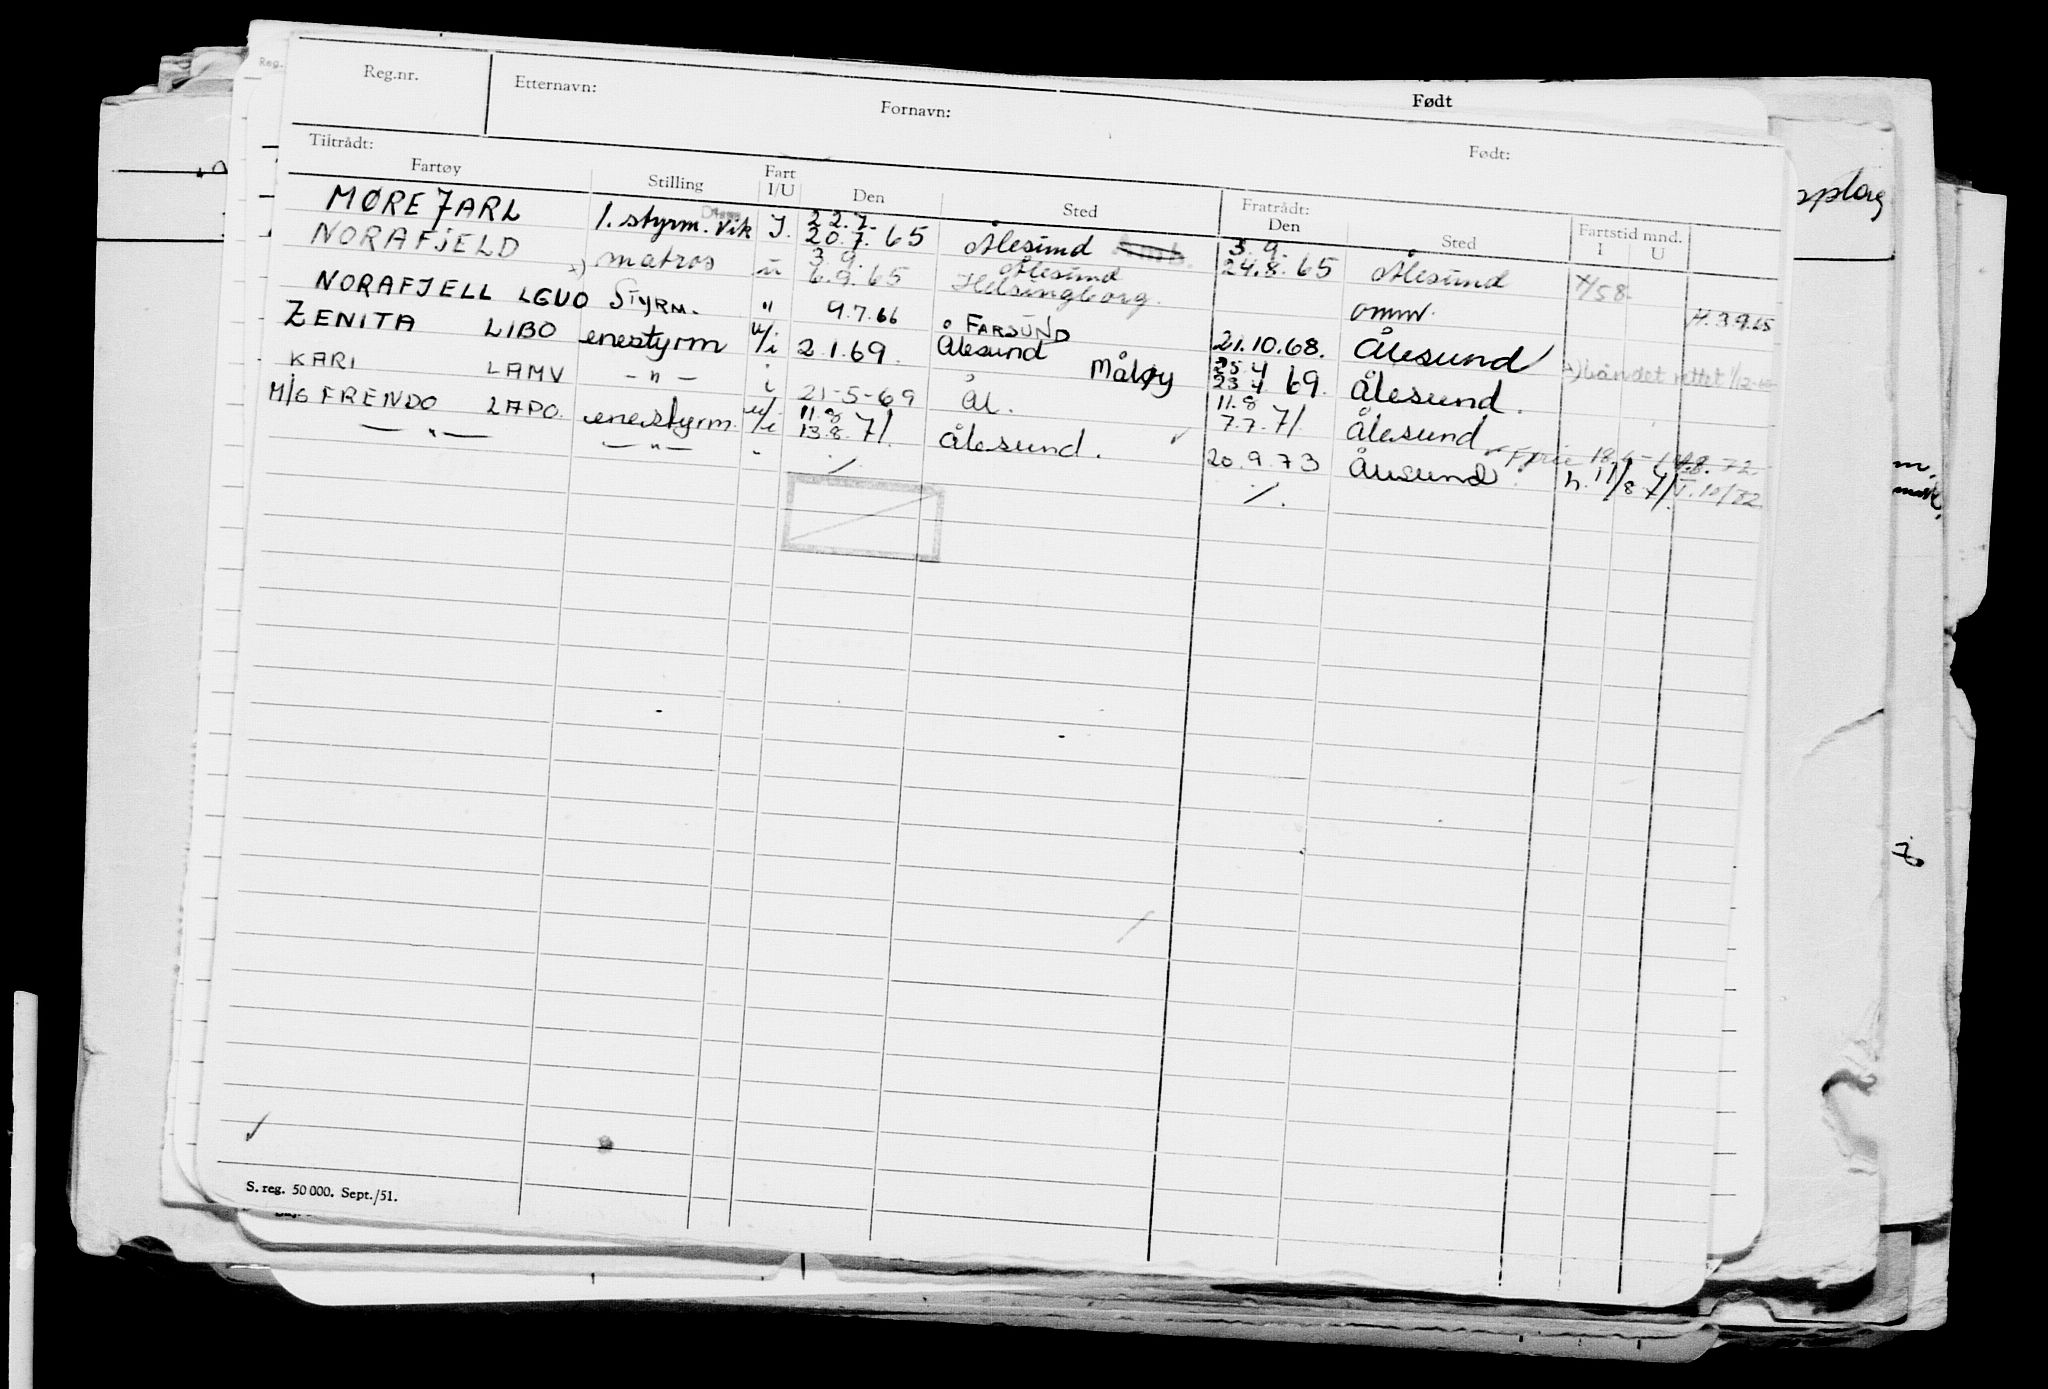 Reg.nr. Etternavn: Fornavn: Født
Født:
Tiltrådt: Fratrådt:
Fartøy Stilling Fart I/U Den Sted Den Sted Fartstid mnd. I U
MØRE JARL 1. styrm. Vik I. 22.7. 20.7. 65 Ålesund 3.9. 24.8. 65 Ålesund
NORAFJELD matros u 3.9. 6.9. 65 Ålesund Helsingborg.
NORAFJELL LGUO STYRM. " 9.7.66 FARSUND omm. H. 3.9.65
ZENITA LIBO enestyrm u/i 2.1.69. Ålesund 21.10.68. Ålesund
KARI LAMV - " - i Måløy 25.4 23.4. 69. Ålesund.
M/G FRENDO LAPO. enestyrm. u/i 21-5-69 Ål. 11.8 7.7. 71. Ålesund
— " — — " — " 11.8 13.8. 71. Ålesund. 20.9.73 Ålesund. h. 11/8 71.
S. reg. 50 000. Sept./51.